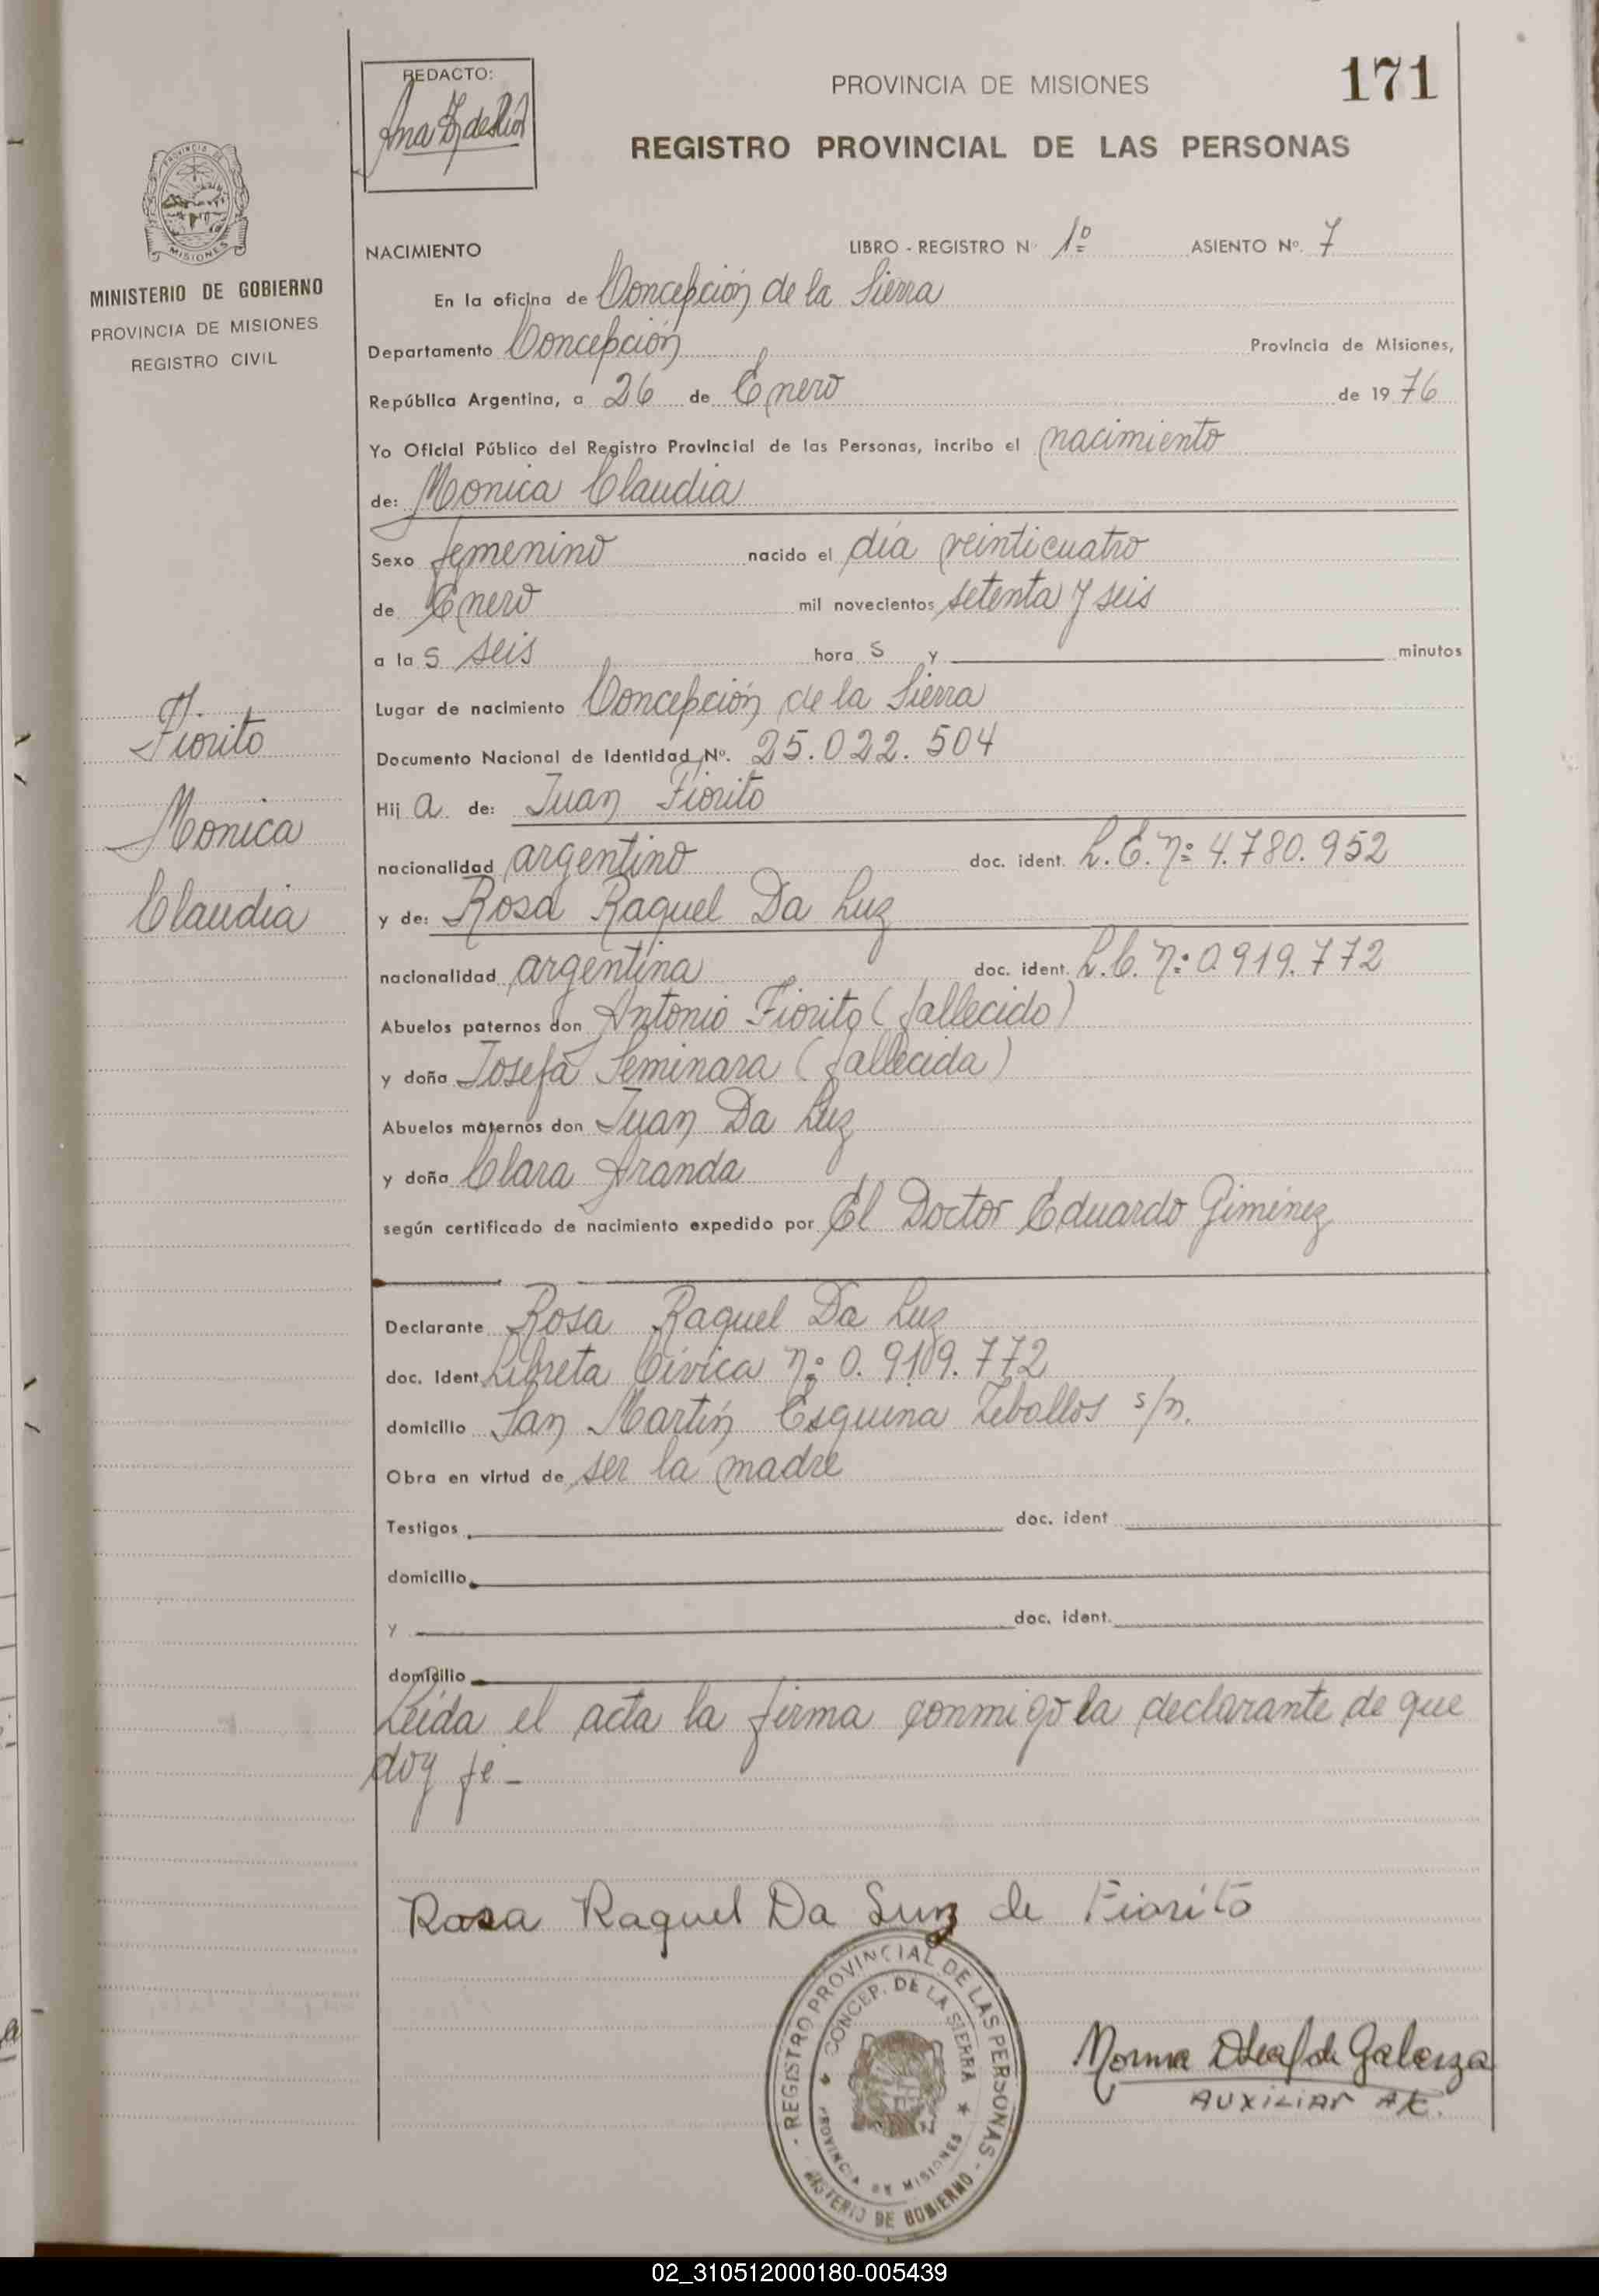 171
REDACTO:
PROVINCIA DE MISIONES
REGISTRO PROVINCIAL DE LAS PERSONAS
PROVINCIA DE
MISIONES
MINISTERIO DE GOBIERNO
PROVINCIA DE MISIONES
REGISTRO CIVIL
Fiorito
Monica
Claudia
NACIMIENTO LIBRO - REGISTRO Nº 1º ASIENTO Nº. 7
En la oficina de Concepción de la Sierra
Departamento Concepción Provincia de Misiones,
República Argentina, a 26 de Enero de 1976
Yo Oficial Público del Registro Provincial de las Personas, incribo el nacimiento
de: Monica Claudia
Sexo femenino nacido el día veinticuatro
de Enero mil novecientos setenta y seis
a la s seis hora s y minutos
Lugar de nacimiento Concepción de la Sierra
Documento Nacional de Identidad Nº. 25.022.504
Hij a de: Juan Fiorito
nacionalidad argentino doc. ident. L.E. nº 4.780.952
y de: Rosa Raquel Da Luz
nacionalidad argentina doc. ident. L.C. nº 0.919.772
Abuelos paternos don Antonio Fiorito (fallecido)
y doña Josefa Seminara (fallecida)
Abuelos maternos don Juan Da Luz
y doña Clara Aranda
según certificado de nacimiento expedido por El Doctor Eduardo Giménez
Declarante Rosa Raquel Da Luz
doc. Ident. Libreta Cívica nº 0.919.772
domicilio San Martín Esquina Zeballos s/n.
Obra en virtud de ser la madre
Testigos doc. ident
domicilio
y doc. ident.
domicilio
Leída el acta la firma conmigo la declarante de que
doy fé -
Rosa Raquel Da Luz de Fiorito
REGISTRO PROVINCIAL DE LAS PERSONAS
CONCEP. DE LA SIERRA
PROVINCIA DE MISIONES
MINISTERIO DE GOBIERNO
Norma de Galarza
AUXILIAR
02_310512000180-005439